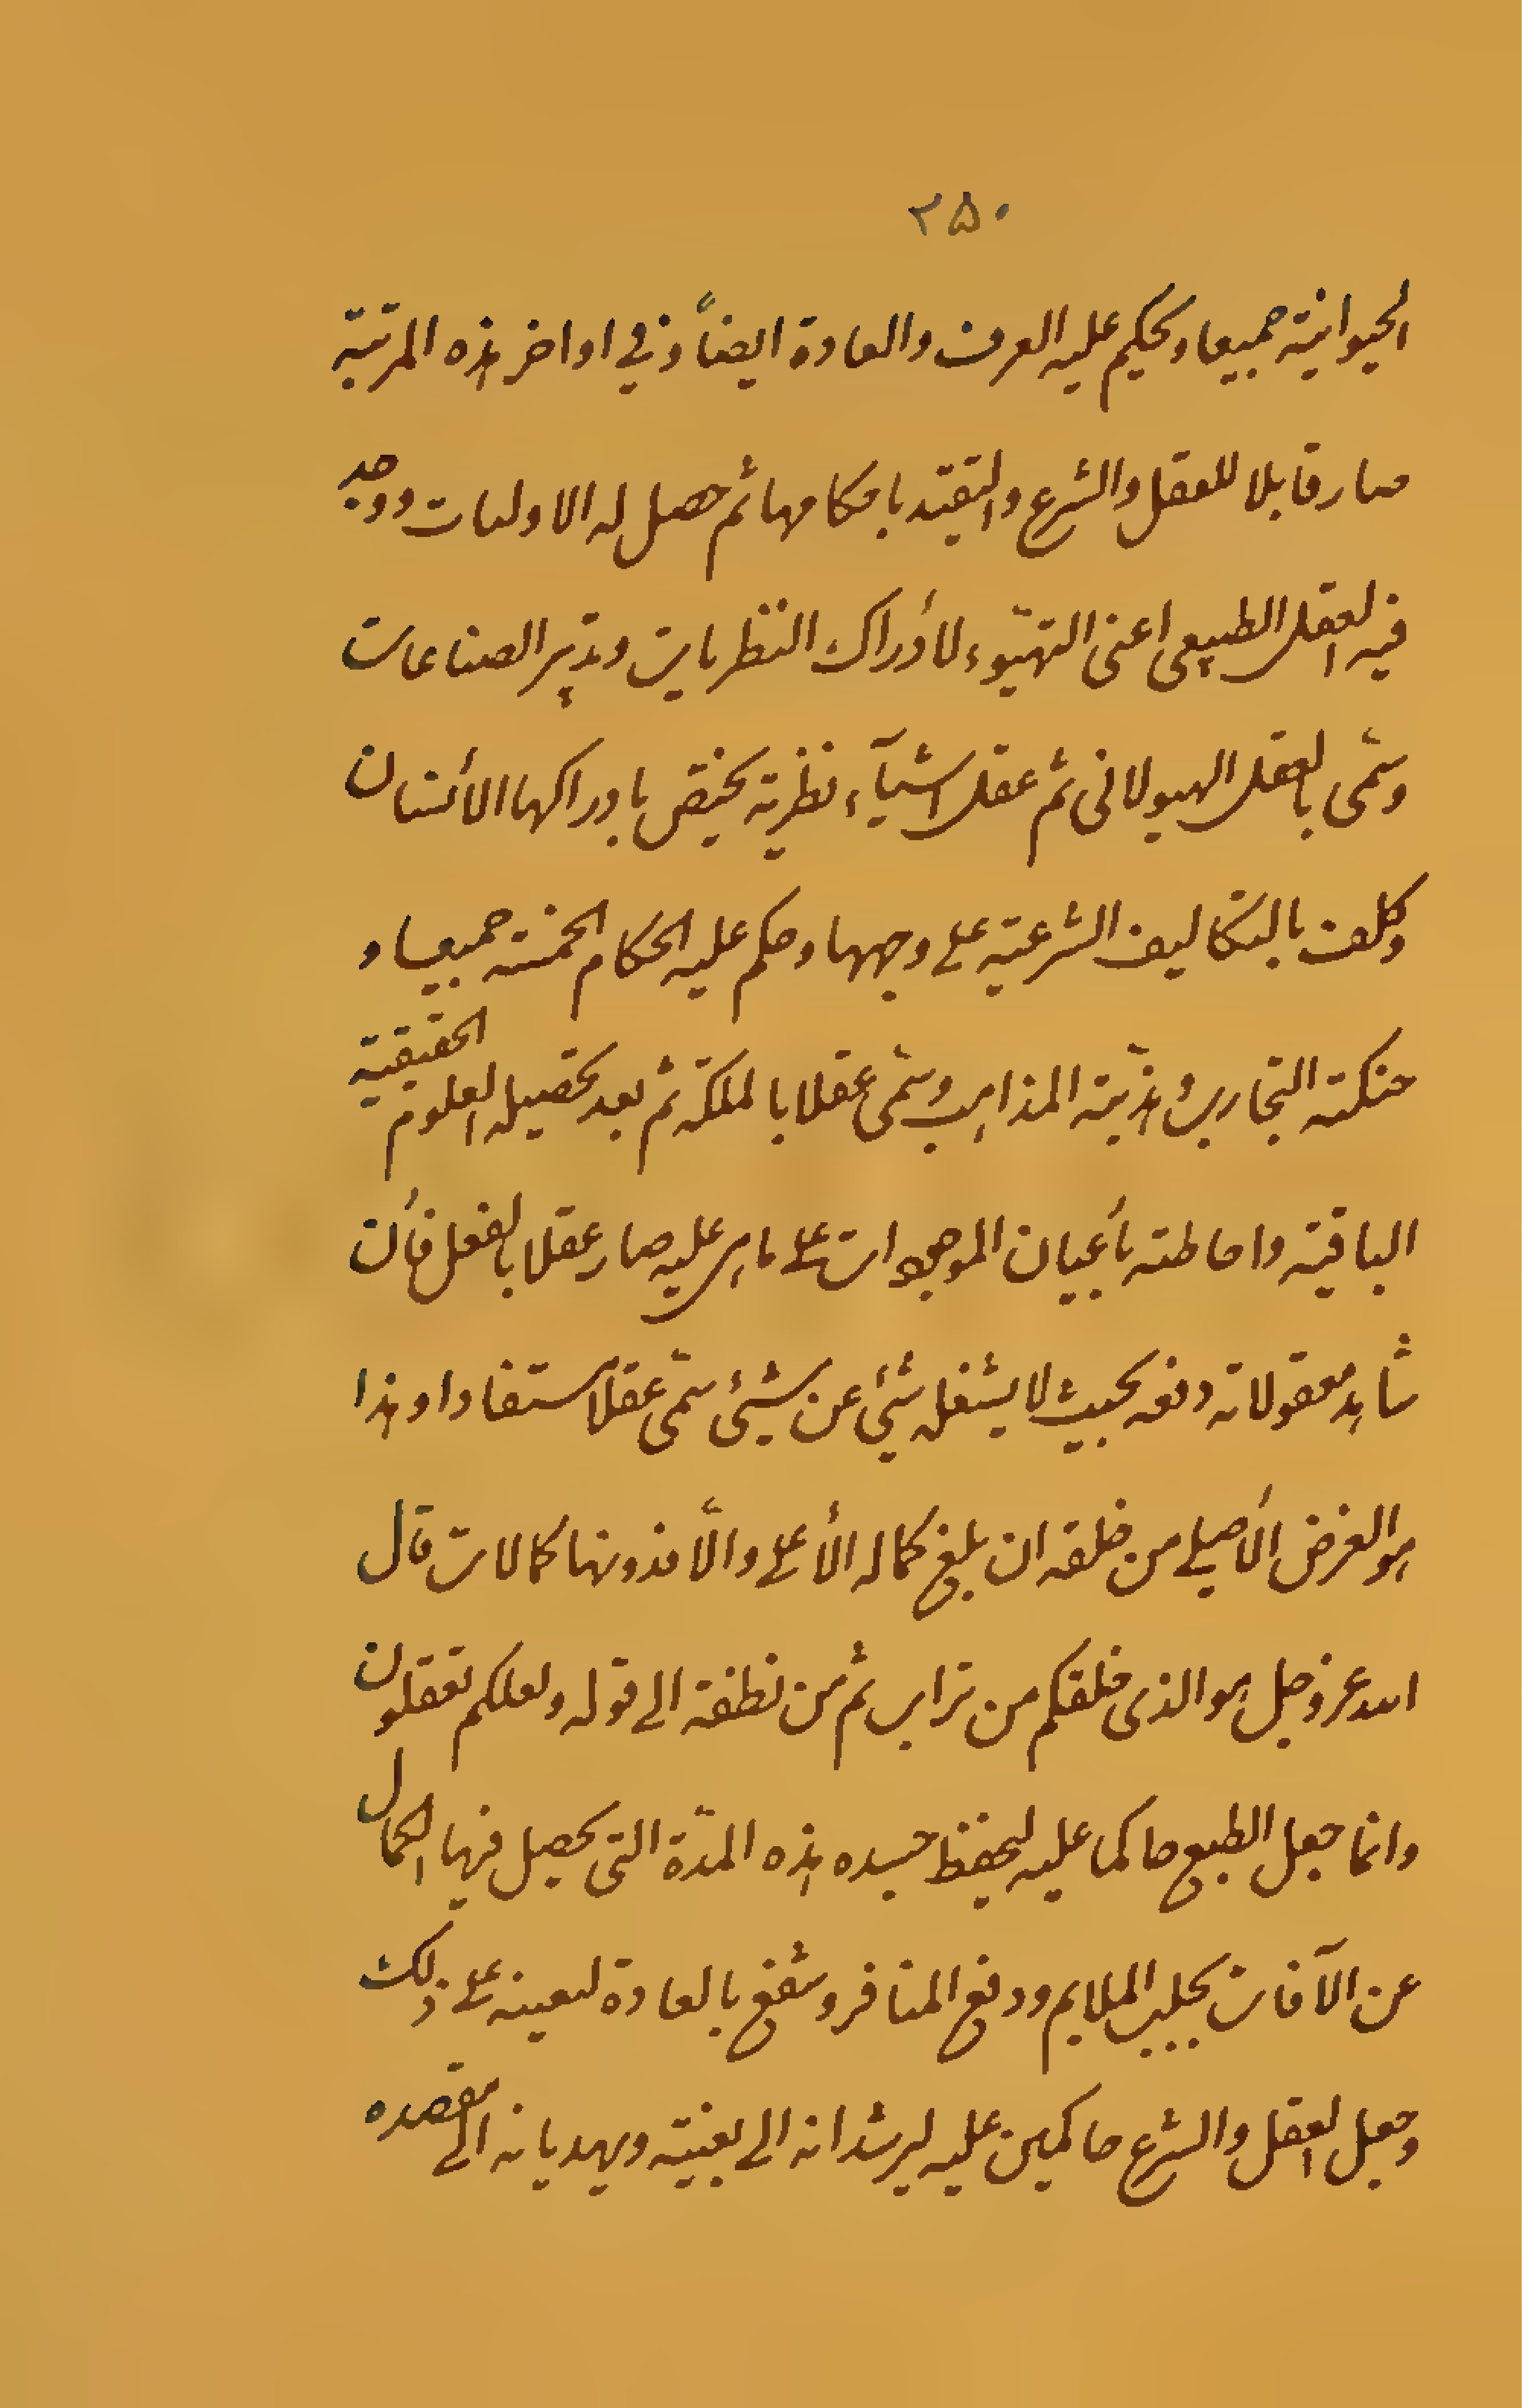 ٢٥٠
الحيوانية جميعا ويحكم عليه العرف والعادة ايضاً وفي اواخر هذه المرتبة
صار قابلا للعقل والشرع والتقيّد باحكامها ثم حصل له الاوليات ووجد
فيه العقل الطبيعى اعنى التهيّوء لأدراك النظريات وتدبير الصناعات
وسمّى بالعقل الهيولانى ثم عقل اشيآء نظرية يختص بادراكها الأنسان
وكلف بالتكاليف الشرعية على وجهها وحكم عليه الحكام الخمسة جميعا و
حنكته التجارب وهذبته المذاهب وسمّى عقلا بالملكة ثم بعد تحصيله العلوم الحقيقية
الباقية واحاطته بأعيان الموجودات على ما هى عليه صار عقلا بالفعل فأن
شاهد معقولاته دفعه بحيث لا يشغله شئ عن شيئ سمّى عقلاً مستفادا وهذا
هو الغرض الأصيلے من خلقه ان بلغ كماله الأعلى والاّ فدونها كمالات قال
الله عز وجل هو الذى خلقكم من تراب ثم من نطفة الى قوله ولعلكم تعقلون
وانما جعل الطبع حاكما عليه ليحفظ جسده هذه المدّة التى يحصل فيها الكمال
عن الآفات بجلب الملايم ودفع المنافر وشفع بالعادة لتعينه على ذلك
وجعل العقل والشرع حاكمين عليه ليرشدانه الى بغيته ويهديانه الى مقصده